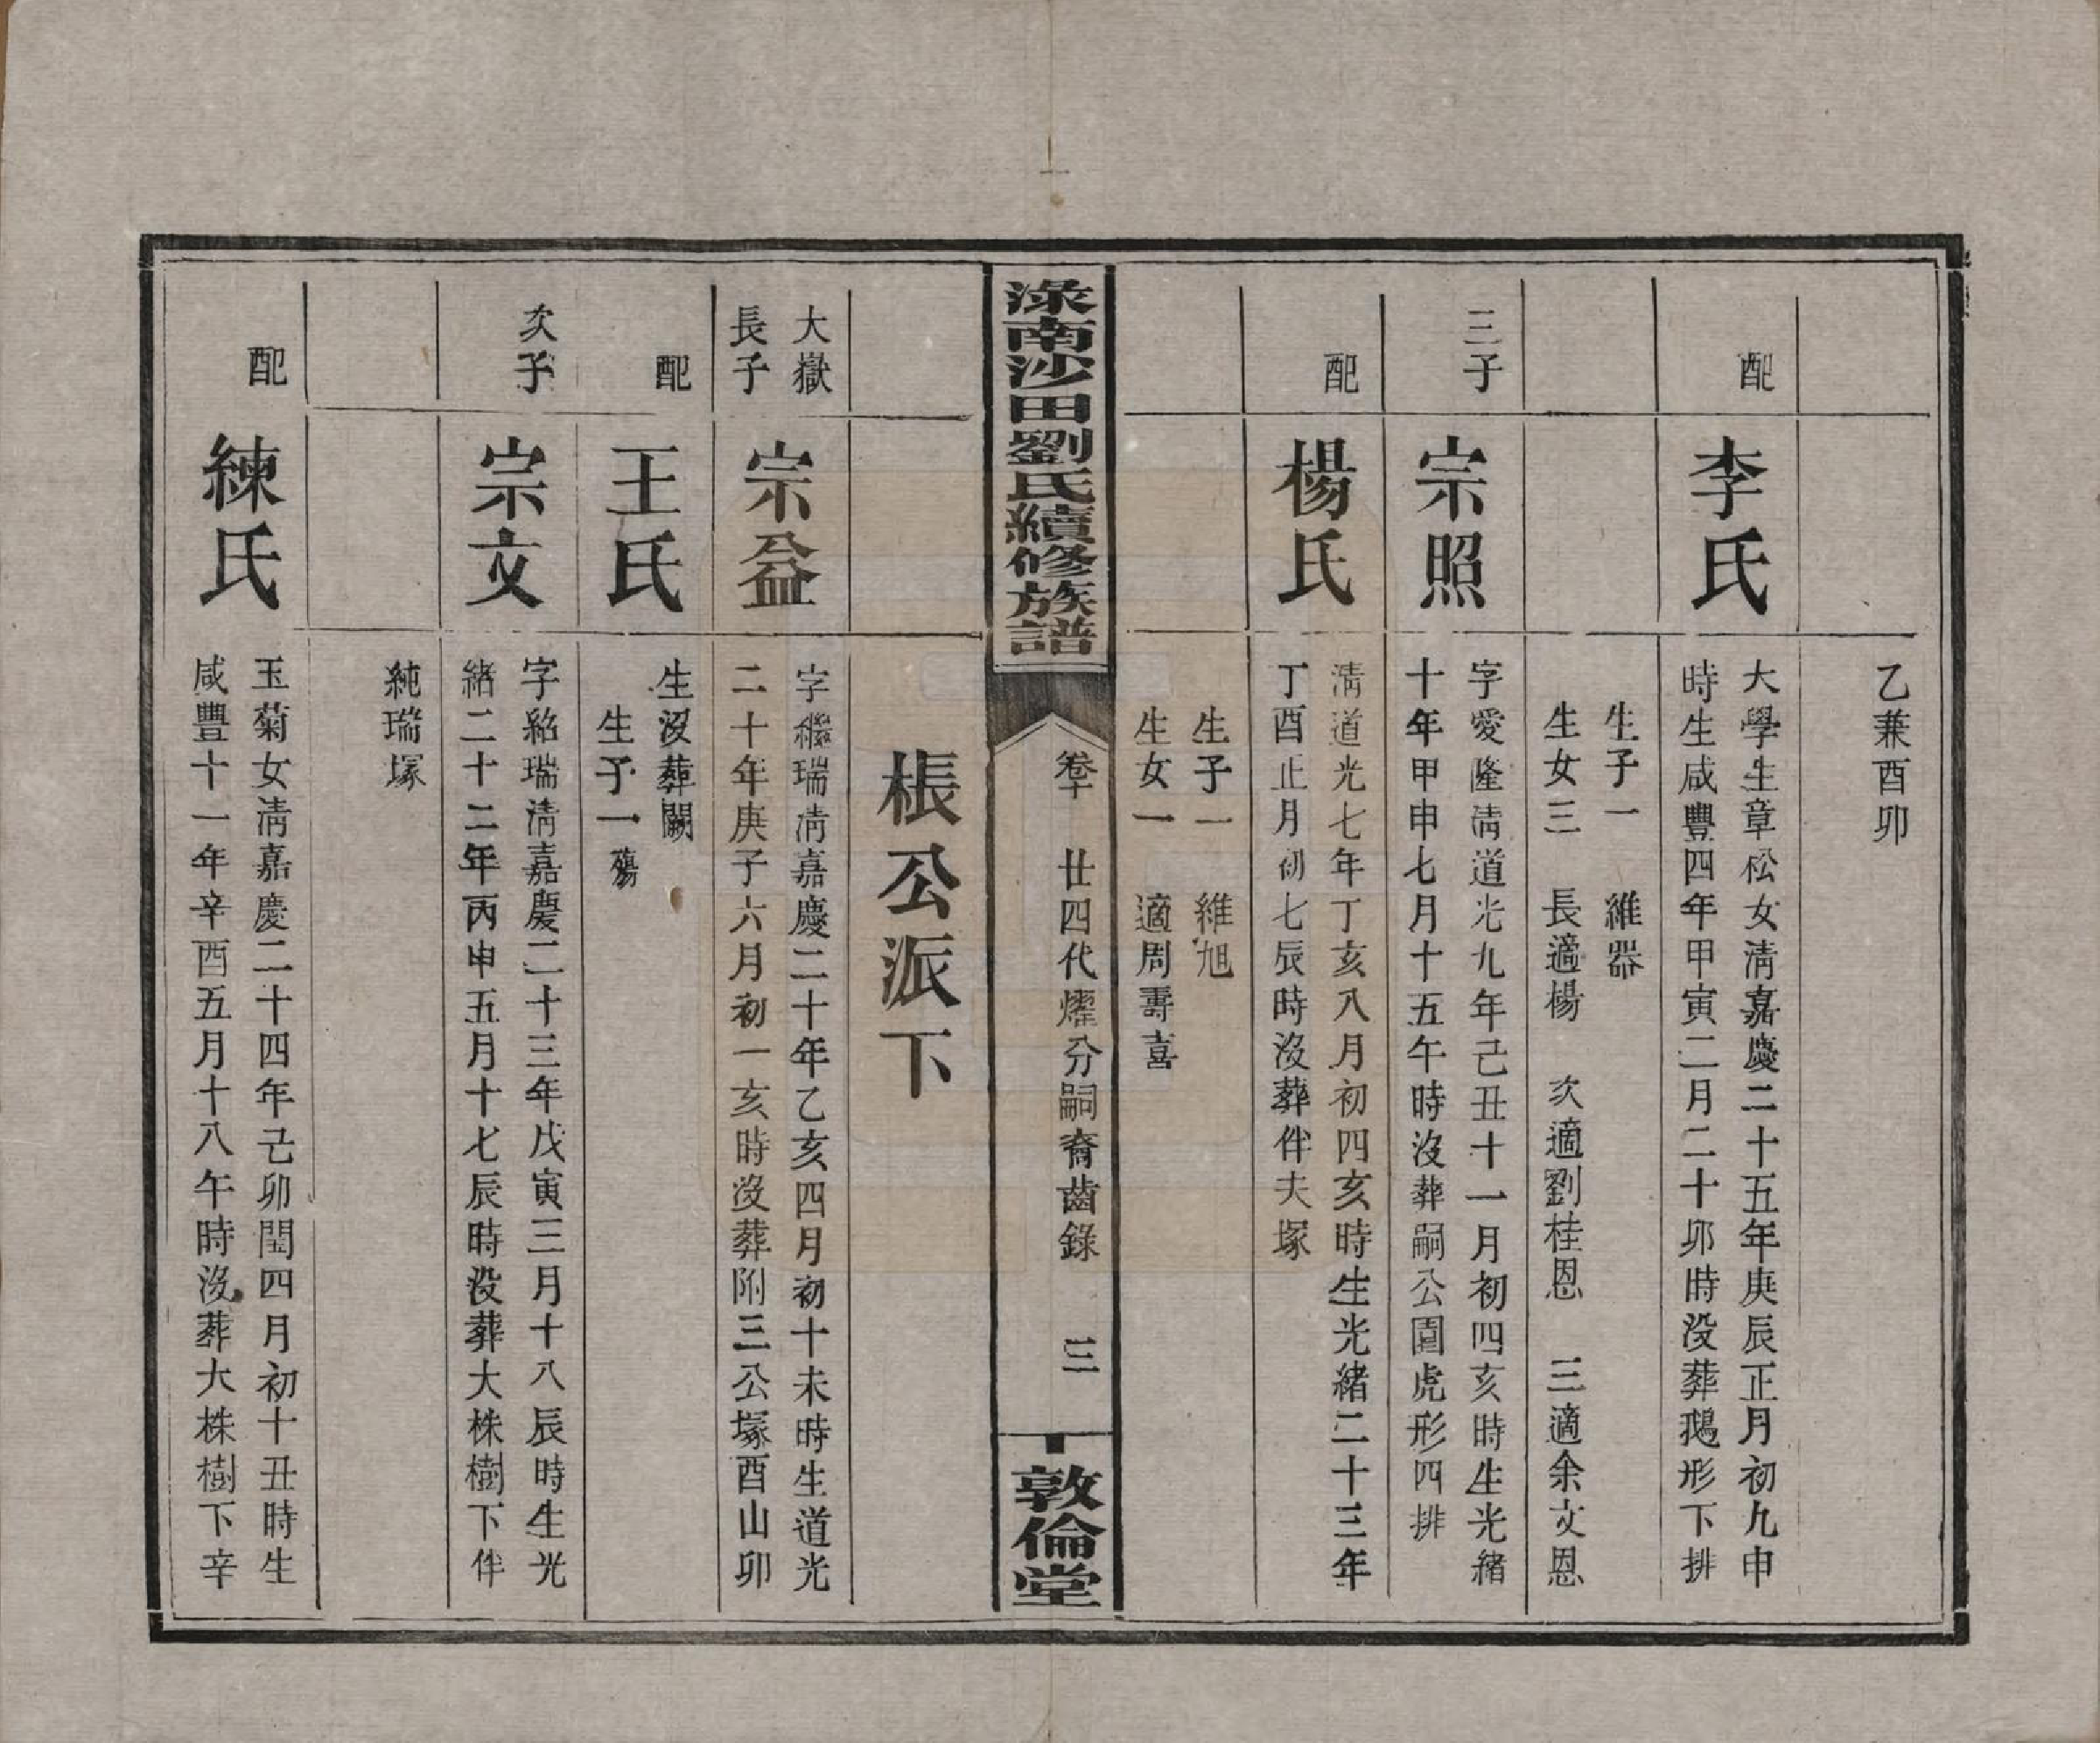 乙兼酉卯
配
李氏
大學生章松女淸嘉慶二十五年庚辰正月初九申
時生咸豐四年甲寅二月二十卯時没葬鵝形下排
生子一　維器
生女三　長適楊　次適劉桂恩　三適余文恩
三子
宗照
字愛隆淸道光九年己丑十一月初四亥時生光緒
十年甲申七月十五午時没葬嗣公園虎形四排
配
楊氏
淸道光七年丁亥八月初四亥時生光緒二十三年
丁酉正月初七辰時没葬伴夫塚
生子一　維旭
生女一　適周壽喜
淥南沙田劉氏續修族譜
卷十　廿四代燿分嗣裔齒錄　三
敦倫堂
棖公派下
大嶽
長子
宗益
字繼瑞淸嘉慶二十年乙亥四月初十未時生道光
二十年庚子六月初一亥時没葬附三公塚酉山卯
配
王氏
生没葬闕
生子一殤
次子
宗文
字紹瑞淸嘉慶二十三年戊寅三月十八辰時生光
緒二十二年丙申五月十七辰時没葬大株樹下伴
純瑞塚
配
練氏
玉菊女淸嘉慶二十四年己卯閏四月初十丑時生
咸豐十一年辛酉五月十八午時没葬大株樹下辛